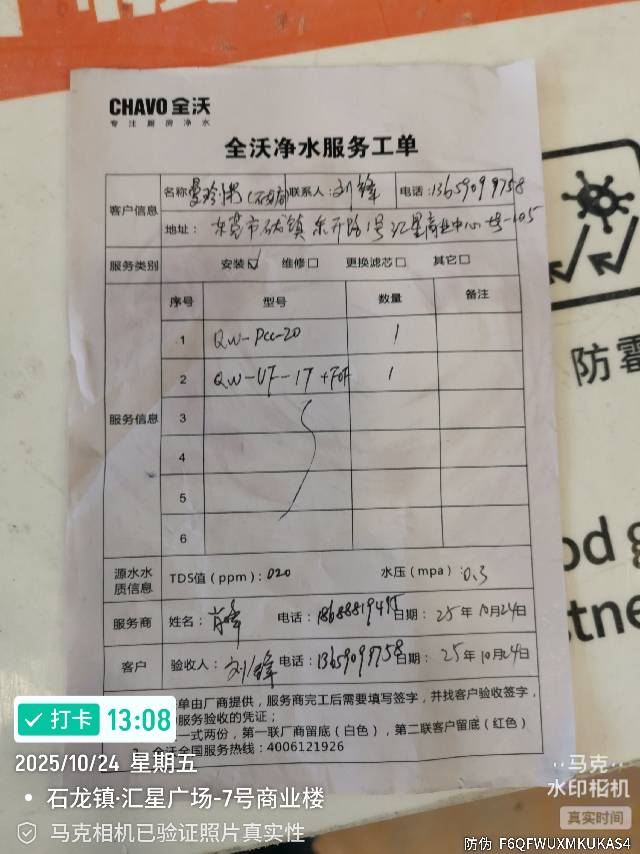 CHAVO 全沃
专注厨房净水
全沃净水服务工单
客户信息
名称 联系人：刘锋 电话：13659099758
地址：东莞市石龙镇东升路1号汇星商业中心
服务类别 安装☑ 维修□ 更换滤芯□ 其它□
服务信息
序号 型号 数量 备注
1 QW-PCC-20 1
2 QW-UF-1T+FOF 1
3
4
5
6
源水水质信息 TDS值（ppm）：020 水压（mpa）：0.3
服务商 姓名：肖峰 电话： 日期：25年10月24日
客户 验收人：刘锋 电话：13659099758 日期：25年10月24日
单由厂商提供，服务商完工后需要填写签字，并找客户验收签字，
服务验收的凭证；
一式两份，第一联厂商留底（白色），第二联客户留底（红色）
全沃全国服务热线：4006121926
防霉
od g
tne
打卡 13:08
2025/10/24 星期五
石龙镇·汇星广场-7号商业楼
马克相机已验证照片真实性
马克
水印相机
真实时间
防伪 F6QFWUXMKUKAS4